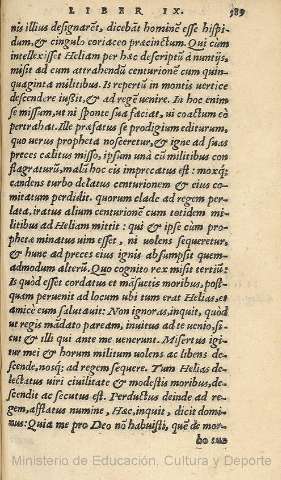 LIBER IX. 589
nis illius designarēt, dicebāt hominē esse hispi
dum, & cingulo coriaceo præcinctum. Qui cùm
intellexisset Heliam per hæc descriptū à nuntijs,
misit ad eum attrahendū centurionē cum quin-
quaginta militibus. Is repertū in montis vertice
descendere iussit, & ad regē venire. In hoc enim
se missam, ut ni sponte sua faciat, ui coactum eò
pertrahat. Ille præfatus se prodigium editurum,
quo verus propheta nosceretur, & igne ad suas
preces cælitus misso, ipsum unà cū militibus con
flagraturū, malū hoc eis imprecatus est: moxq;
candens turbo delatus centurionem & eius co-
mitatum perdidit. quorum clade ad regem per-
lata, iratus alium centurionē cum totidem mi-
litibus ad Heliam mittit: qui & ipse cùm pro-
phetæ minatus uim esset, ni uolens sequeretur,
& hunc ad preces eius ignis absumpsit quem-
admodum alterū. Quo cognito rex misit tertiū:
Is quòd esset cordatus et māsuetis moribus, post-
quam peruenit ad locum ubi tum erat Helias, et
amicè eum salutauit: Non ignoras, inquit, quòd
ut regis mādato paream, inuitus ad te uenio, si-
cut & illi qui ante me uenerunt. Misertus igi
tur mei & horum militum uolens ac libens de-
scende, nosq; ad regem sequere. Tum Helias de-
lectatus viri ciuilitate & modestis moribus, de-
scendit ac secutus est. Perductus deinde ad re-
gem, afflatus numine, Hæc, inquit, dicit domi-
nus: Quia me pro Deo nō habuisti, quē de mor-
bo suo
Ministerio de Educación, Cultura y Deporte